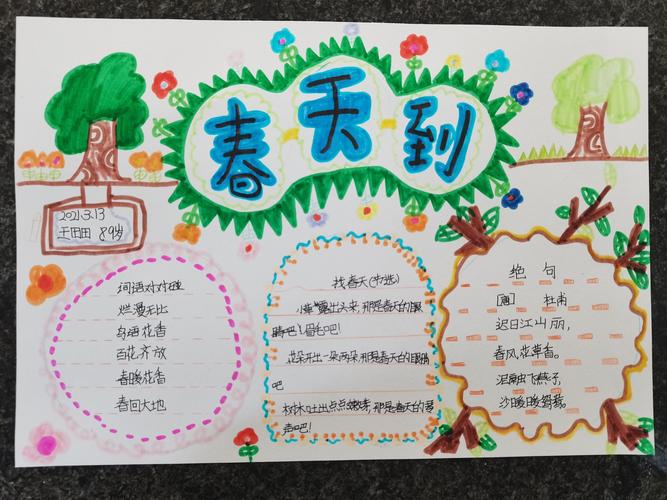 春天到
2021.3.13
王田田 8.9岁
词语对对碰
烂漫无比
鸟语花香
百花齐放
春暖花香
春回大地
找春天(节选)
小草露出头来,那是春天的眉
吧!
花朵开出一朵两朵那是春天的眼睛
吧
树木吐出点点嫩芽,那是春天的琴
声吧!
绝句
杜甫
迟日江山丽,
春风花草香。
泥融飞燕子,
沙暖睡鸳鸯